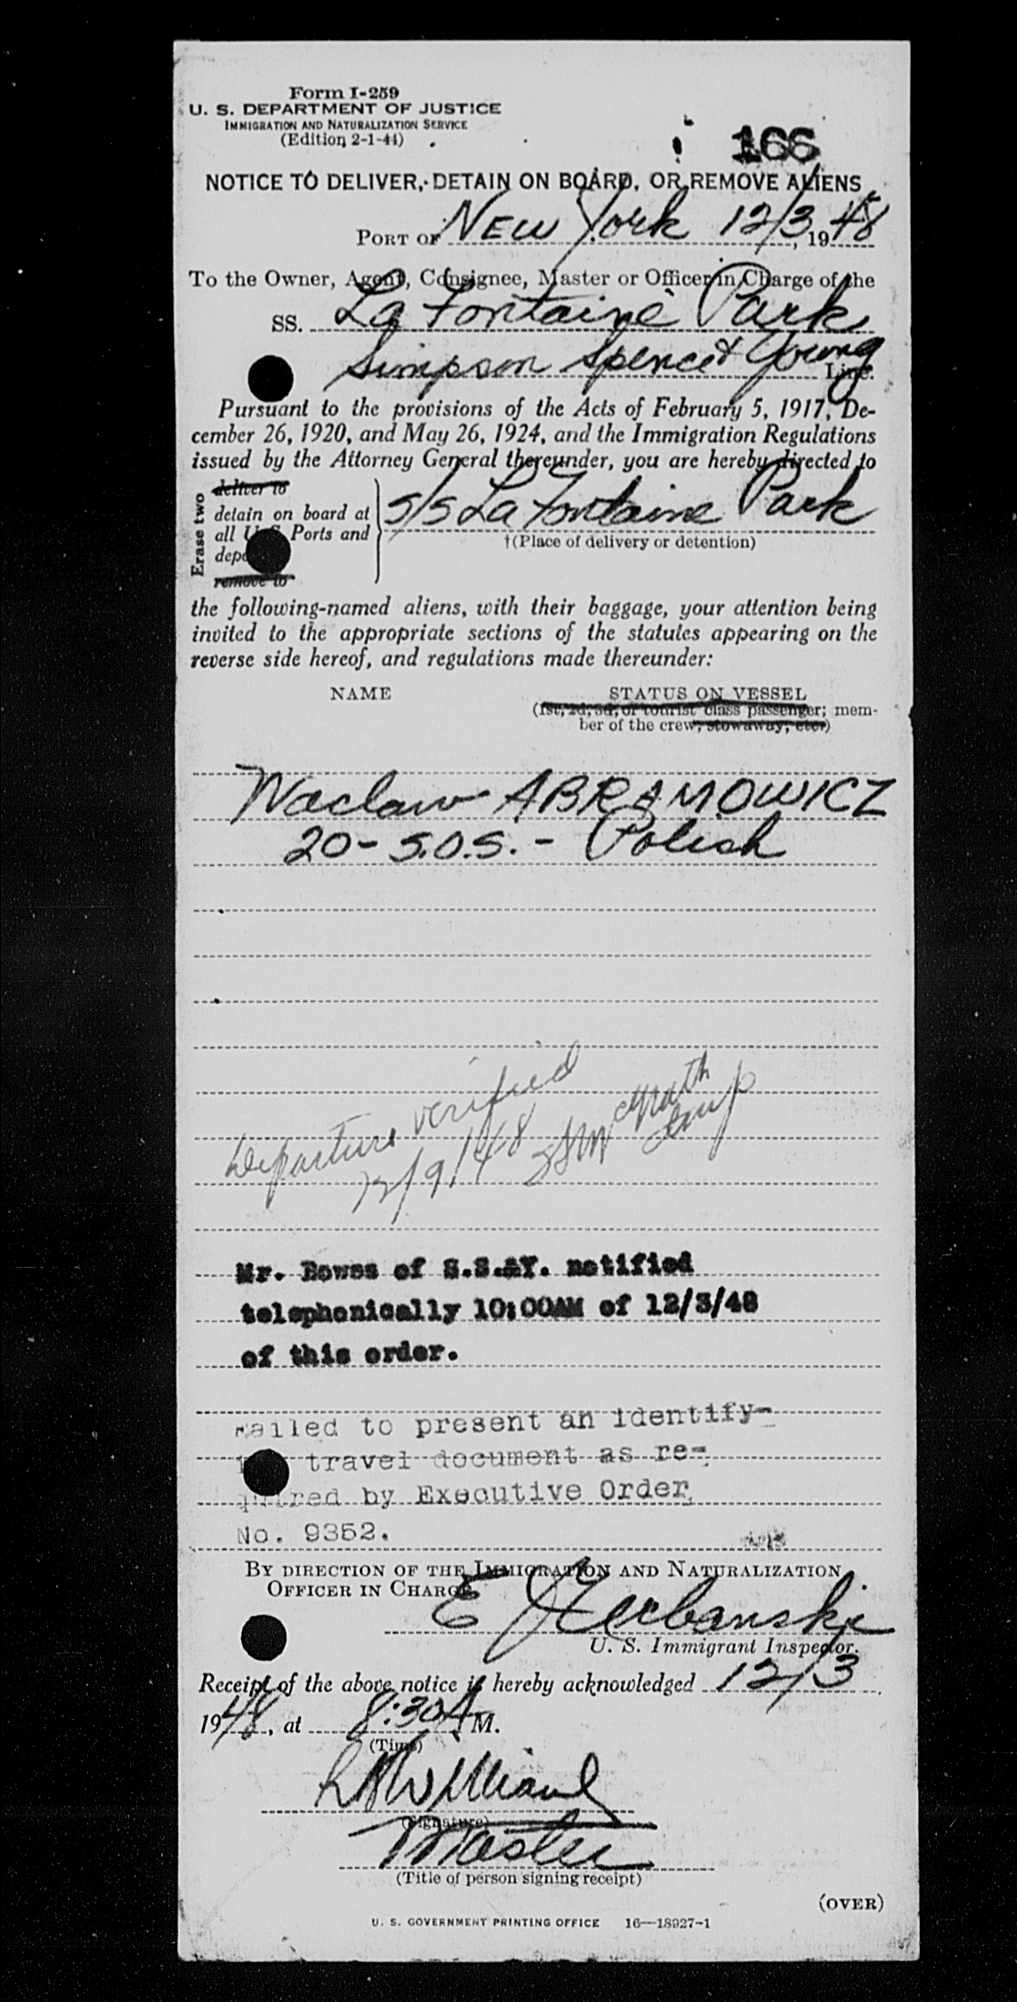 Form I-259
U. S. DEPARTMENT OF JUSTICE
IMMIGRATION AND NATURALIZATION SERVICE
(Edition 2-1-44)
166
NOTICE TO DELIVER, DETAIN ON BOARD, OR REMOVE ALIENS
PORT OF NEW York 12/3, 1948
To the Owner, Agent, Consignee, Master or Officer in Charge of the
SS. La Fontaine Park
Simpson Spence & Young Line.
Pursuant to the provisions of the Acts of February 5, 1917, De-
cember 26, 1920, and May 26, 1924, and the Immigration Regulations
issued by the Attorney General thereunder, you are hereby directed to
Erase two
deliver to
detain on board at
all U. S. Ports and
remove to
s/s La Fontaine Park
†(Place of delivery or detention)
the following-named aliens, with their baggage, your attention being
invited to the appropriate sections of the statutes appearing on the
reverse side hereof, and regulations made thereunder:
NAME
STATUS ON VESSEL
(1st, 2d, 3d, or tourist class passenger; mem-
ber of the crew, stowaway, etc.)
Waclaw ABRAMOWICZ
20 - S.O.S. - Polish
Departure verified
12/9/48
Mr. Bowes of S.S.&Y. notified
telephonically 10:00AM of 12/3/48
of this order.
Failed to present an identify-
travel document as re-
quired by Executive Order
No. 9352.
BY DIRECTION OF THE IMMIGRATION AND NATURALIZATION
OFFICER IN CHARGE
E
U. S. Immigrant Inspector.
Receipt of the above notice is hereby acknowledged 12/3
1948, at 8:30 A M.
(Time)
(Signature)
Master
(Title of person signing receipt)
(OVER)
U. S. GOVERNMENT PRINTING OFFICE 16—18927-1